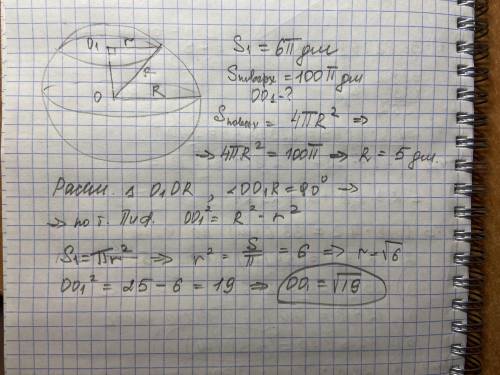 O₁ r
R
O R
S₁ = 6π дм
Sповерх = 100π дм
OO₁ - ?
Sповерх = 4πR² ⇒
→ 4πR² = 100π ⇒ R = 5 дм.
Рассм. Δ O₁OR, ∠OO₁R = 90° →
→ по т. Пиф. OO₁² = R² - r²
S₁ = πr² ⇒ r² = S/π = 6 ⇒ r = √6
OO₁² = 25 - 6 = 19 ⇒ OO₁ = √19